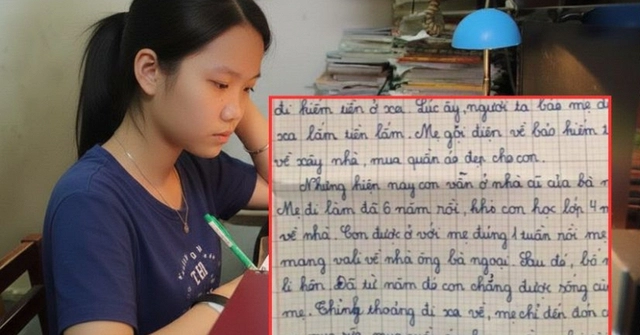 đi kiếm tiền ở xa. Lúc ấy, người ta bảo mẹ đ
xa lắm tiền lắm. Mẹ gọi điện về bảo kiếm t
về xây nhà, mua quần áo đẹp cho con.
Nhưng hiện nay con vẫn ở nhà cũ của bà n
Mẹ đi làm đã 6 năm rồi, khi con học lớp 4 m
về nhà. Con được ở với mẹ đúng 1 tuần rồi mẹ
mang vali về nhà ông bà ngoại. Sau đó, bố m
li hôn. Đã từ năm đó con chẳng được sống cù
mẹ. Thỉnh thoảng đi xa về, mẹ chỉ đến đón c